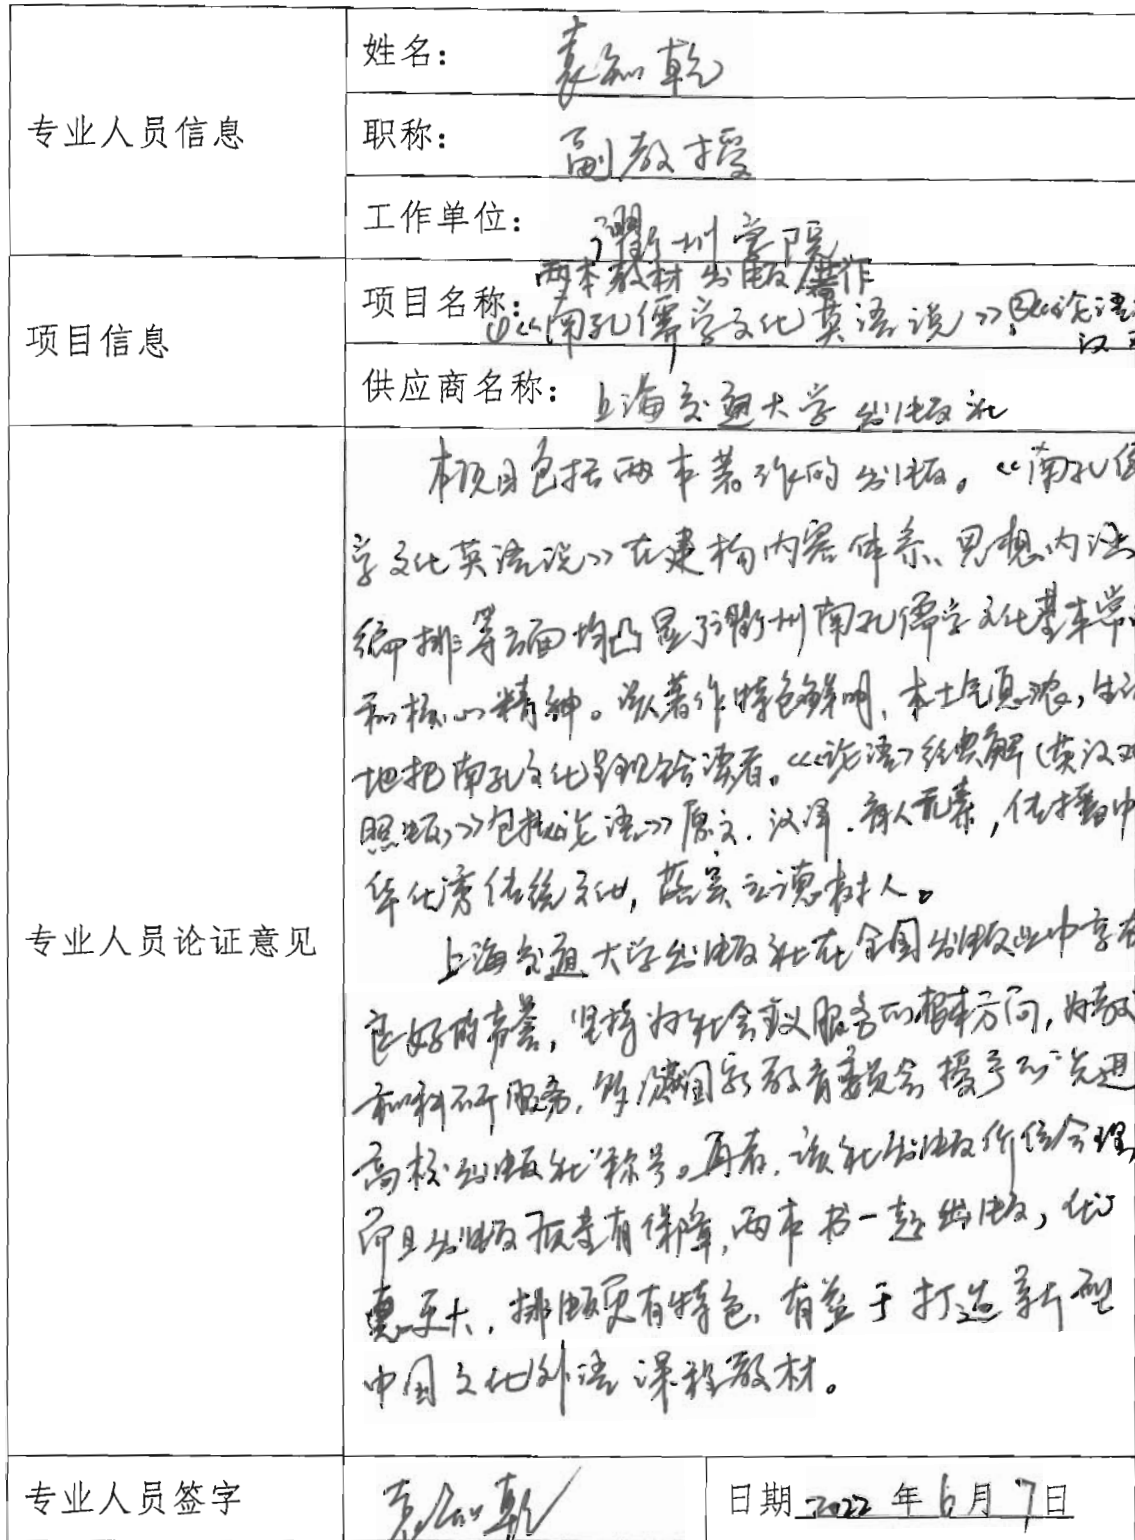 专业人员信息
姓名： 袁知乾
职称： 副教授
工作单位： 衢州学院
项目信息
两本教材出版著作
项目名称： ①《南孔儒学文化英语说》；②《论语
汉
供应商名称： 上海交通大学出版社
本项目包括两本著作的出版。《南孔儒
学文化英语说》在建构内容体系、思想内涵
编排等方面均凸显了衢州南孔儒学文化基本常
和核心精神。该著作特色鲜明，本土气息浓，生动
地把南孔文化呈现给读者。《论语》经典解（英汉对
照版）》包括《论语》原文、汉译、育人元素，传播中
华优秀传统文化，落实立德树人。
专业人员论证意见
上海交通大学出版社在全国出版业中享有
良好的声誉，坚持为社会主义服务的根本方向，为教
和科研服务，曾被国家教育委员会授予“先进
高校出版社”称号。再者，该社出版价位合理，
而且出版质量有保障，两本书一起出版，优
惠更大，排版更有特色，有益于打造新型
中国文化外语课程教材。
专业人员签字 袁知乾 日期 2022 年 6 月 7 日